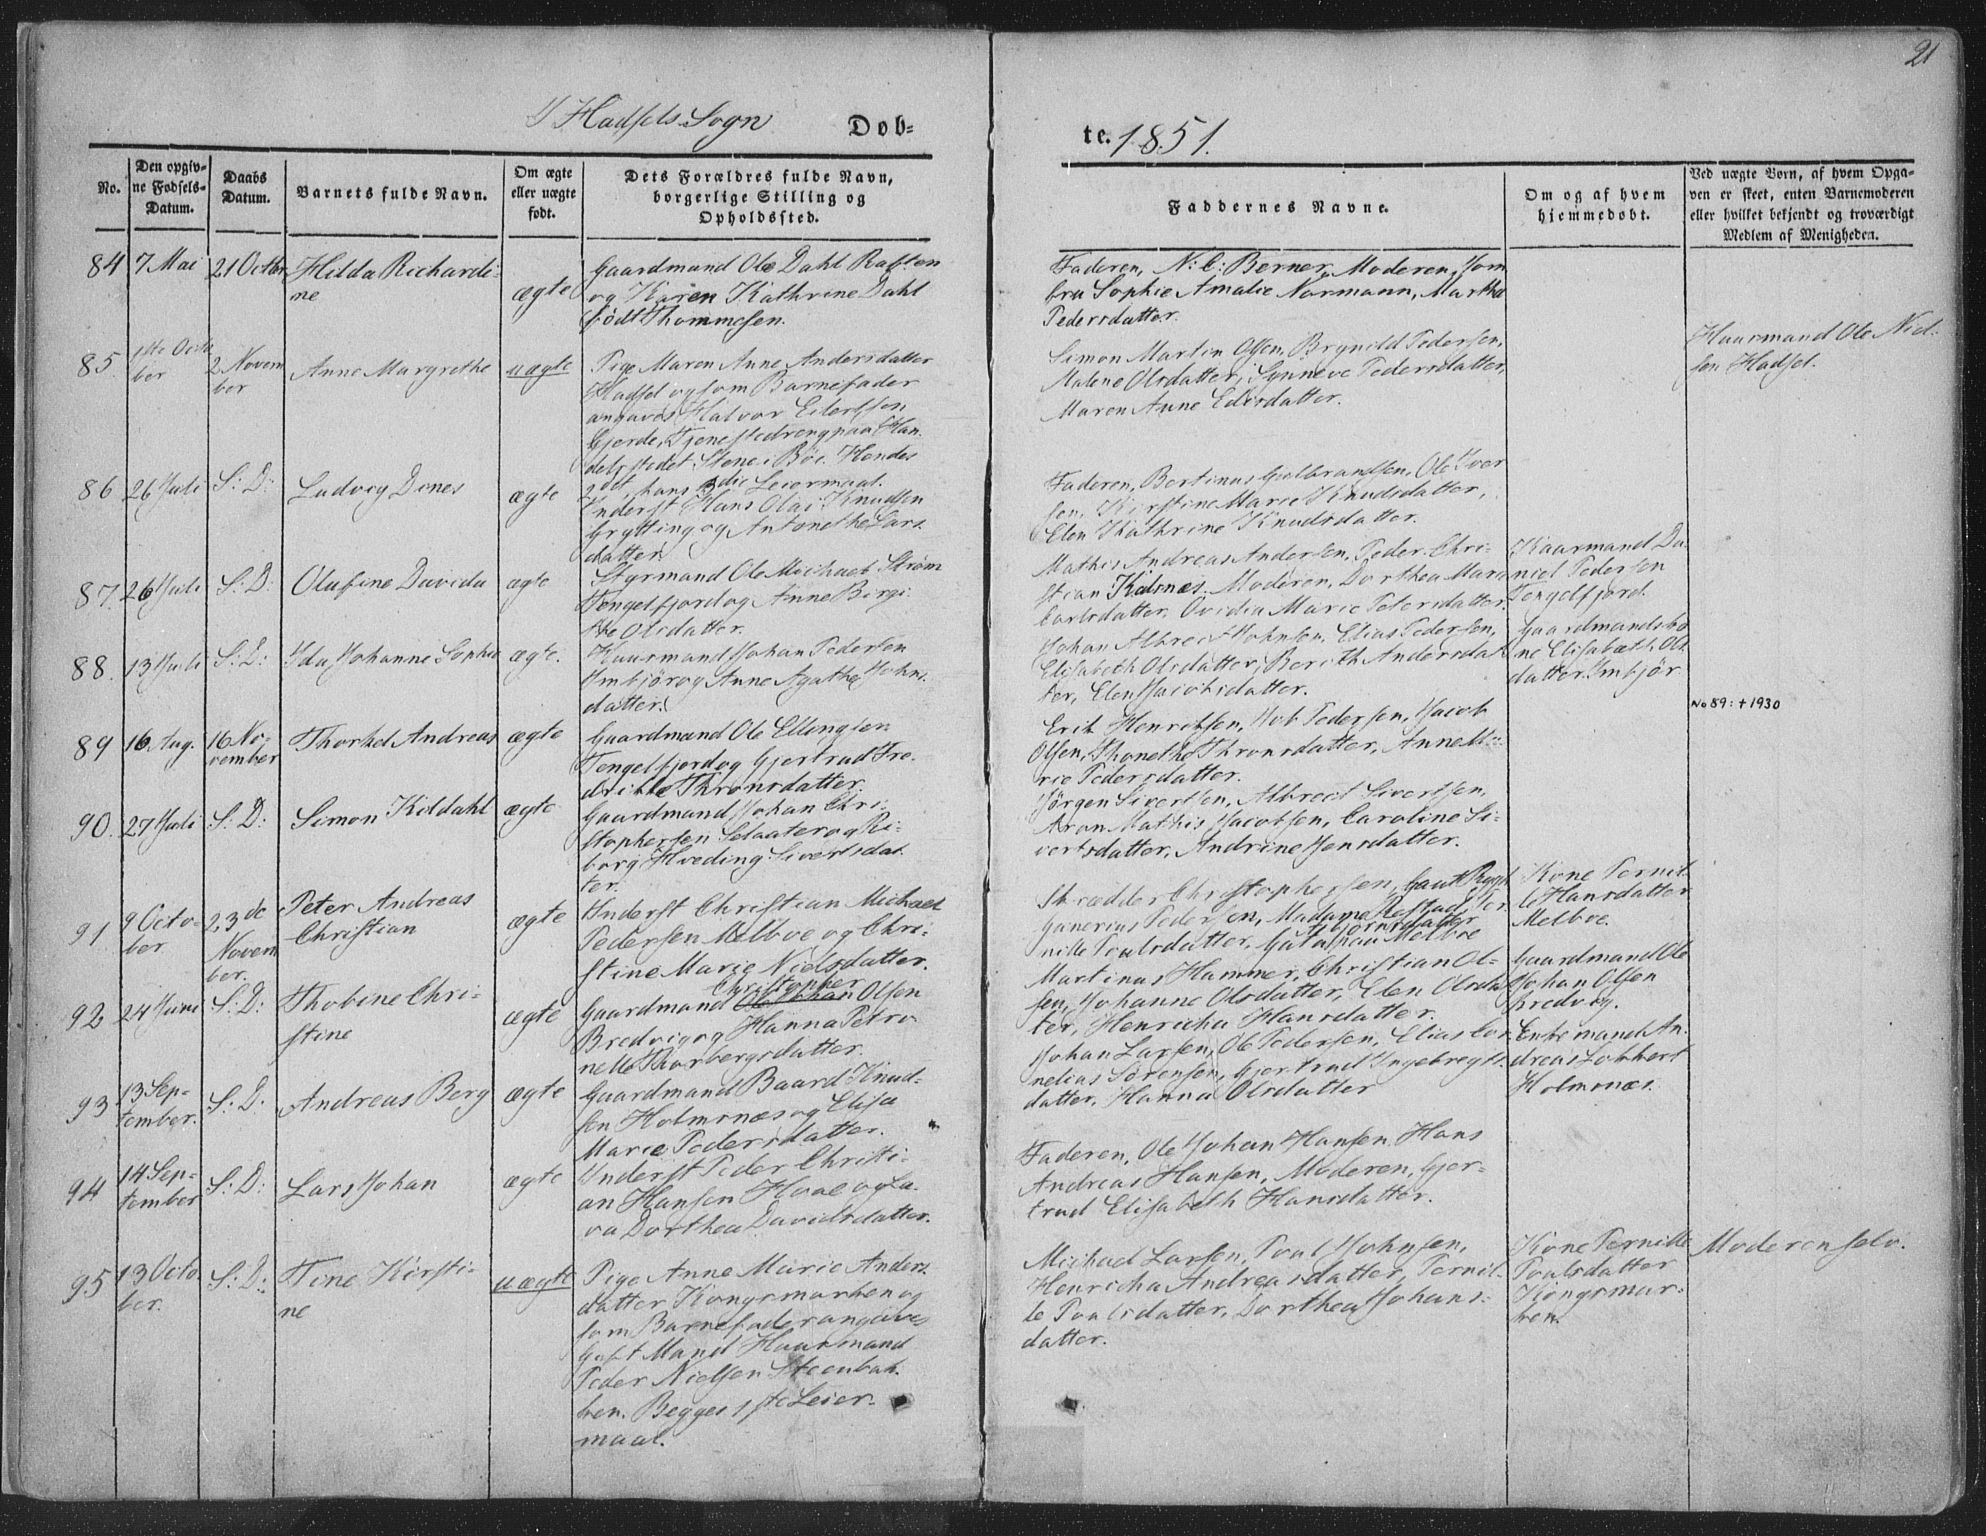 21
I Hadsels Sogn
Dob=
te. 1851.
No.
Den opgiv=
ne Fødsels=
Datum.
Daabs
Datum.
Barnets fulde Navn.
Om ægte
eller uægte
født.
Dets Forældres fulde Navn,
borgerlige Stilling og
Opholdssted.
Faddernes Navne.
Om og af hvem
hjemmedøbt.
Ved uægte Børn, af hvem Opga=
ven er skeet, enten Barnemoderen
eller hvilket bekjendt og troværdigt
Medlem af Menigheden.
84
7 Mai
21 Octbr
Hilda Richardi=
ne
ægte
Gaardmand Ole Dahl Raften
og Karen Kathrine Dahl
født Thommesen.
Faderen, N: C: Berner, Moderen, Jom
fru Sophie Amalie Normann, Martha
Pedersdatter.
85.
1ste Octo
ber
2 Novem
ber
Anne Margrethe
uægte
Pige Maren Anne Andersdatter
Hadsel og som Barnefader
angaves Halvor Eilertsen
Gjerde, Tjenestedreng paa Han
delsstedet Stene i Bøe. Hendes
2det, hans 3die Leiermaal.
Simon Martin Olsen, Brynild Pedersen,
Malene Olsdatter, Synneve Pedersdatter,
Maren Anne Edisdatter.
Haarmand Ole Niel=
sen Hadsel.
86
26 Juli
S: D:
Ludvig Dines
ægte
Inderst Hans Olai Knudsen
Grytting og Antonethe Lars
datter
Faderen, Bertinus Guldbrandsen, Ole Iver
sen, Kirstine Marie Knudsdatter,
Elen Kathrine Knudsdatter.
87.
26 Juli
S: D:
Olufine Davida
ægte
Styrmand Ole Michael Strøm
Tengelfjord og Anne Birgi
tte Olsdatter.
Mathis Andreas Andersen, Peder Chri=
stian Kidsnæs, Moderen, Dorthea Marie
Carlsdatter, Ovidia Marie Petersdatter.
Haarmand Da
niel Pedersen
Tengelfjord.
88.
13 Juli
S: D:
Ida Johanne Sophie
ægte.
Haarmand Johan Pedersen
Imbjør og Anne Agathe Johns
datter.
Johan Albrect Johnsen, Elias Pedersen,
Elisabeth Olsdatter, Berith Andersdat
ter, Elen Jacobsdatter.
Gaardmandsko
ne Elisabeth Ols
datter Imbjør
89
16 Aug.
16 No=
vember
Thorkel Andreas
ægte
Gaardmand Ole Ellingsen
Tengelfjord og Gjertrud Fre=
drikke Thronsdatter.
Erik Henriksen, Job Pedersen, Jacob
Olsen, Thonethe Thronsdatter, Anne Ma=
rie Pedersdatter.
No 89: + 1930
90.
27 Juli
S: D:
Simon Kildahl
ægte
Gaardmand Johan Chri=
stophersen Selaater og Ri=
borg Hveding Sivertsdat
ter.
Jørgen Sivertsen, Albrect Sivertsen,
Aron Mathis Jacobsen, Caroline Si=
vertsdatter, Andrine Jensdatter.
91
9 Octo=
ber
23de
Novem
ber.
Peter Andreas
Christian
ægte
Inderst Christian Michael
Pedersen Melboe og Chri=
stine Marie Nielsdatter.
Skrædder Christophersen, Gaut
Ganerius Pedersen, Madame Refstad, Per
nille Poulsdatter,
Kone Pernil
le Hansdatter
Melboe.
92
24 Juni
S: D:
Thobine Chri=
stine
ægte
Christopher
Gaardmand Ole Johan Olsen
Bredvig og Hanna Petro
nelle Thorbergsdatter.
Martinus Hammer, Christian Ol=
sen, Johanne Olsdatter, Elen Olsdat
ter, Henricha Hansdatter.
Gaardmand Ole
Johan Olsen
Bredvig.
93
13 Sep=
tember.
S: D:
Andreas Berg
ægte
Gaardmand Baard Knud=
sen Holmsnæs og Elisa
Marie Pedersdatter.
Johan Larsen, Ole Pedersen, Elias Cor
nelius Sørensen, Gjertrud Ingebregts=
datter, Hanna Olsdatter
Enkemand An=
dreas Lokkert
Holmsnæs.
94
14 Sep=
tember
S: D:
Lars Johan
ægte
Inderst Peder Christi=
an Hansen Hoal og La
va Dorthea Davidsdatter.
Faderen, Ole Johan Hansen, Hans
Andreas Hansen, Moderen, Gjer=
trud Elisabeth Hansdatter.
95
13 Octo
ber.
S: D:
Tine Kirsti=
ne
uægte
Pige Anne Marie Anders
datter Kongsmarken og
som Barnefader angives
Gift Mand Haarmand
Peder Nielsen Steenbak
ken. Begges 1ste Leier=
maal.
Michael Larsen, Poul Johnsen,
Henricha Andreasdatter, Pernil=
le Poulsdatter, Dorthea Johans=
datter.
Kone Pernille
Poulsdatter
Kongsmar=
ken.
Moderen selv.